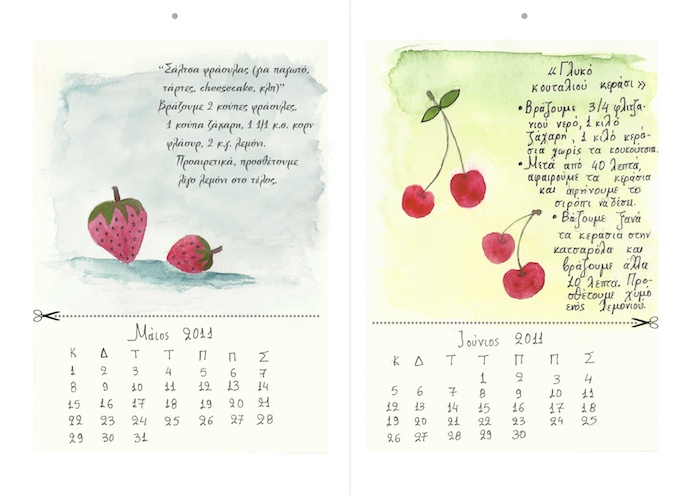 “Σάλτσα φράουλας (για παγωτό,
τάρτες, cheesecake, κλπ)”
Βράζουμε 2 κούπες φράουλες,
1 κούπα ζάχαρη, 1 1/1 κ.σ. κορν
φλάουρ, 2 κ.γ. λεμόνι.
Προαιρετικά, προσθέτουμε
λίγο λεμόνι στο τέλος.
Μάιος 2011
Κ Δ Τ Τ Π Π Σ
1 2 3 4 5 6 7
8 9 10 11 12 13 14
15 16 17 18 19 20 21
22 23 24 25 26 27 28
29 30 31
«Γλυκό
κουταλιού κεράσι»
• Βράζουμε 3/4 φλιτζα-
νιού νερό, 1 κιλό
ζάχαρη, 1 κιλό κερά-
σια χωρίς τα κουκούτσια.
• Μετά από 40 λεπτά,
αφαιρούμε τα κεράσια
και αφήνουμε το
σιρόπι να δέσει.
• Βάζουμε ξανά
τα κεράσια στην
κατσαρόλα και
βράζουμε άλλα
10 λεπτα. Προ-
σθέτουμε χυμό
ενός λεμονιού.
Ιούνιος 2011
Κ Δ Τ Τ Π Π Σ
1 2 3 4
5 6 7 8 9 10 11
12 13 14 15 16 17 18
19 20 21 22 23 24 25
26 27 28 29 30